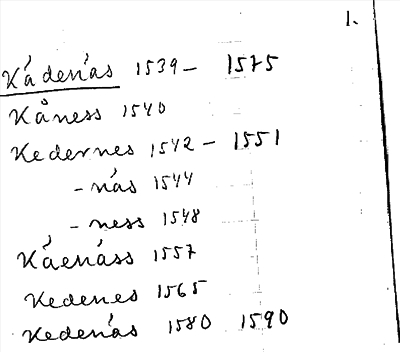 1.
Kädenäs 1539 – 1575
Kåness 1540
Kedernes 1542 – 1551
- näs 1544
- ness 1548
Käenäss 1557
Kedenes 1565
Kedenäs 1580 1590